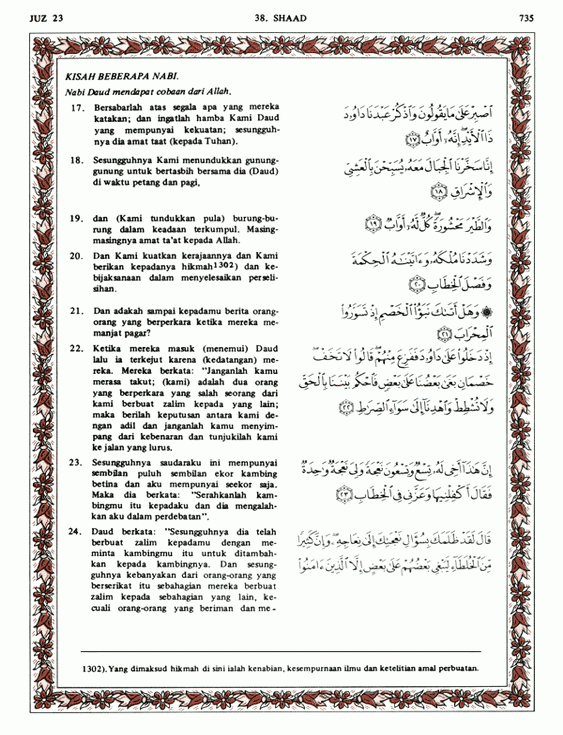 JUZ 23
38. SHAAD
735
KISAH BEBERAPA NABI.
Nabi Daud mendapat cobaan dari Allah.
17. Bersabarlah atas segala apa yang mereka
katakan; dan ingatlah hamba Kami Daud
yang mempunyai kekuatan; sesungguh-
nya dia amat taat (kepada Tuhan).
اَصْبِرْ عَلٰى مَا يَقُولُونَ وَاذْكُرْ عَبْدَنَا دَاوُودَ
ذَا الْأَيْدِ إِنَّهُ أَوَّابٌ ١٧
18. Sesungguhnya Kami menundukkan gunung-
gunung untuk bertasbih bersama dia (Daud)
di waktu petang dan pagi,
إِنَّا سَخَّرْنَا الْجِبَالَ مَعَهُ يُسَبِّحْنَ بِالْعَشِيِّ
وَالْإِشْرَاقِ ١٨
19. dan (Kami tundukkan pula) burung-bu-
rung dalam keadaan terkumpul. Masing-
masingnya amat ta'at kepada Allah.
وَالطَّيْرَ مَحْشُورَةً كُلٌّ لَهُ أَوَّابٌ ١٩
20. Dan Kami kuatkan kerajaannya dan Kami
berikan kepadanya hikmah1302) dan ke-
bijaksanaan dalam menyelesaikan perseli-
sihan.
وَشَدَدْنَا مُلْكَهُ وَءَاتَيْنٰهُ الْحِكْمَةَ
وَفَصْلَ الْخِطَابِ ٢٠
21. Dan adakah sampai kepadamu berita orang-
orang yang berperkara ketika mereka me-
manjat pagar?
۞ وَهَلْ أَتٰىكَ نَبَؤُا الْخَصْمِ إِذْ تَسَوَّرُوا
الْمِحْرَابَ ٢١
22. Ketika mereka masuk (menemui) Daud
lalu ia terkejut karena (kedatangan) me-
reka. Mereka berkata: "Janganlah kamu
merasa takut; (kami) adalah dua orang
yang berperkara yang salah seorang dari
kami berbuat zalim kepada yang lain;
maka berilah keputusan antara kami de-
ngan adil dan janganlah kamu menyim-
pang dari kebenaran dan tunjukilah kami
ke jalan yang lurus.
إِذْ دَخَلُوا عَلٰى دَاوُودَ فَفَزِعَ مِنْهُمْ قَالُوا لَا تَخَفْ
خَصْمَانِ بَغٰى بَعْضُنَا عَلٰى بَعْضٍ فَاحْكُمْ بَيْنَنَا بِالْحَقِّ
وَلَا تُشْطِطْ وَاهْدِنَا إِلٰى سَوَاءِ الصِّرٰطِ ٢٢
23. Sesungguhnya saudaraku ini mempunyai
sembilan puluh sembilan ekor kambing
betina dan aku mempunyai seekor saja.
Maka dia berkata: "Serahkanlah kam-
bingmu itu kepadaku dan dia mengalah-
kan aku dalam perdebatan".
إِنَّ هٰذَا أَخِي لَهُ تِسْعٌ وَتِسْعُونَ نَعْجَةً وَلِيَ نَعْجَةٌ وٰحِدَةٌ
فَقَالَ أَكْفِلْنِيهَا وَعَزَّنِي فِي الْخِطَابِ ٢٣
24. Daud berkata: "Sesungguhnya dia telah
berbuat zalim kepadamu dengan me-
minta kambingmu itu untuk ditambah-
kan kepada kambingnya. Dan sesung-
guhnya kebanyakan dari orang-orang yang
berserikat itu sebahagian mereka berbuat
zalim kepada sebahagian yang lain, ke-
cuali orang-orang yang beriman dan me-
قَالَ لَقَدْ ظَلَمَكَ بِسُؤَالِ نَعْجَتِكَ إِلٰى نِعَاجِهِ وَإِنَّ كَثِيرًا
مِنَ الْخُلَطَاءِ لَيَبْغِي بَعْضُهُمْ عَلٰى بَعْضٍ إِلَّا الَّذِينَ ءَامَنُوا
1302). Yang dimaksud hikmah di sini ialah kenabian, kesempurnaan ilmu dan ketelitian amal perbuatan.